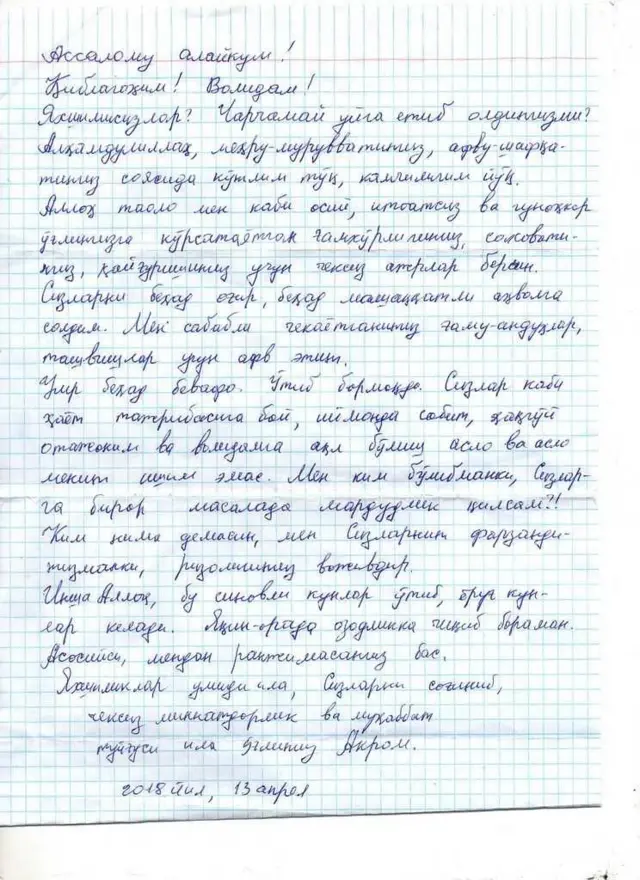 Ассалому алайкум!
Қиблагоҳим! Волидам!
Яхшимисизлар? Чарчамай уйга етиб олдингизми?
Алҳамдулиллаҳ, меҳру-мурувватингиз, афву-шафқа-
тингиз соясида кўнглим тўқ, камчилигим йўқ.
Аллоҳ таоло мен каби осий, итоатсиз ва гуноҳкор
ўғлингизга кўрсатаётган ғамхўрлигингиз, саховати-
нгиз, қайғуришингиз учун чексиз ажрлар берсин.
Сизларни беҳад оғир, беҳад машаққатли аҳволга
солдим. Мен сабабли чекаётганингиз ғаму-андуҳлар,
ташвишлар учун афв этинг.
Умр беҳад бевафо. Ўтиб бормоқда. Сизлар каби
ҳаёт тажрибасига бой, иймонда собит, ҳақгўй
отажоним ва волидамга ақл бўлиш асло ва асло
менинг ишим эмас. Мен ким бўлибманки, Сизлар-
га бирор масалада мардудлик қилсам?!
Ким нима демасин, мен Сизларнинг фарзанди-
нгизманки, ризолигингиз вожибдир.
Инша Аллоҳ, бу синовли кунлар ўтиб, ёруғ кун-
лар келади. Яқин-орада озодликка чиқиб бораман.
Асосийси, мендан ранжимасангиз бас.
Яхшиликлар умиди ила, Сизларни соғиниб,
чексиз миннатдорлик ва муҳаббат
туйғуси ила ўғлингиз Акром.
2018 йил, 13 апрел